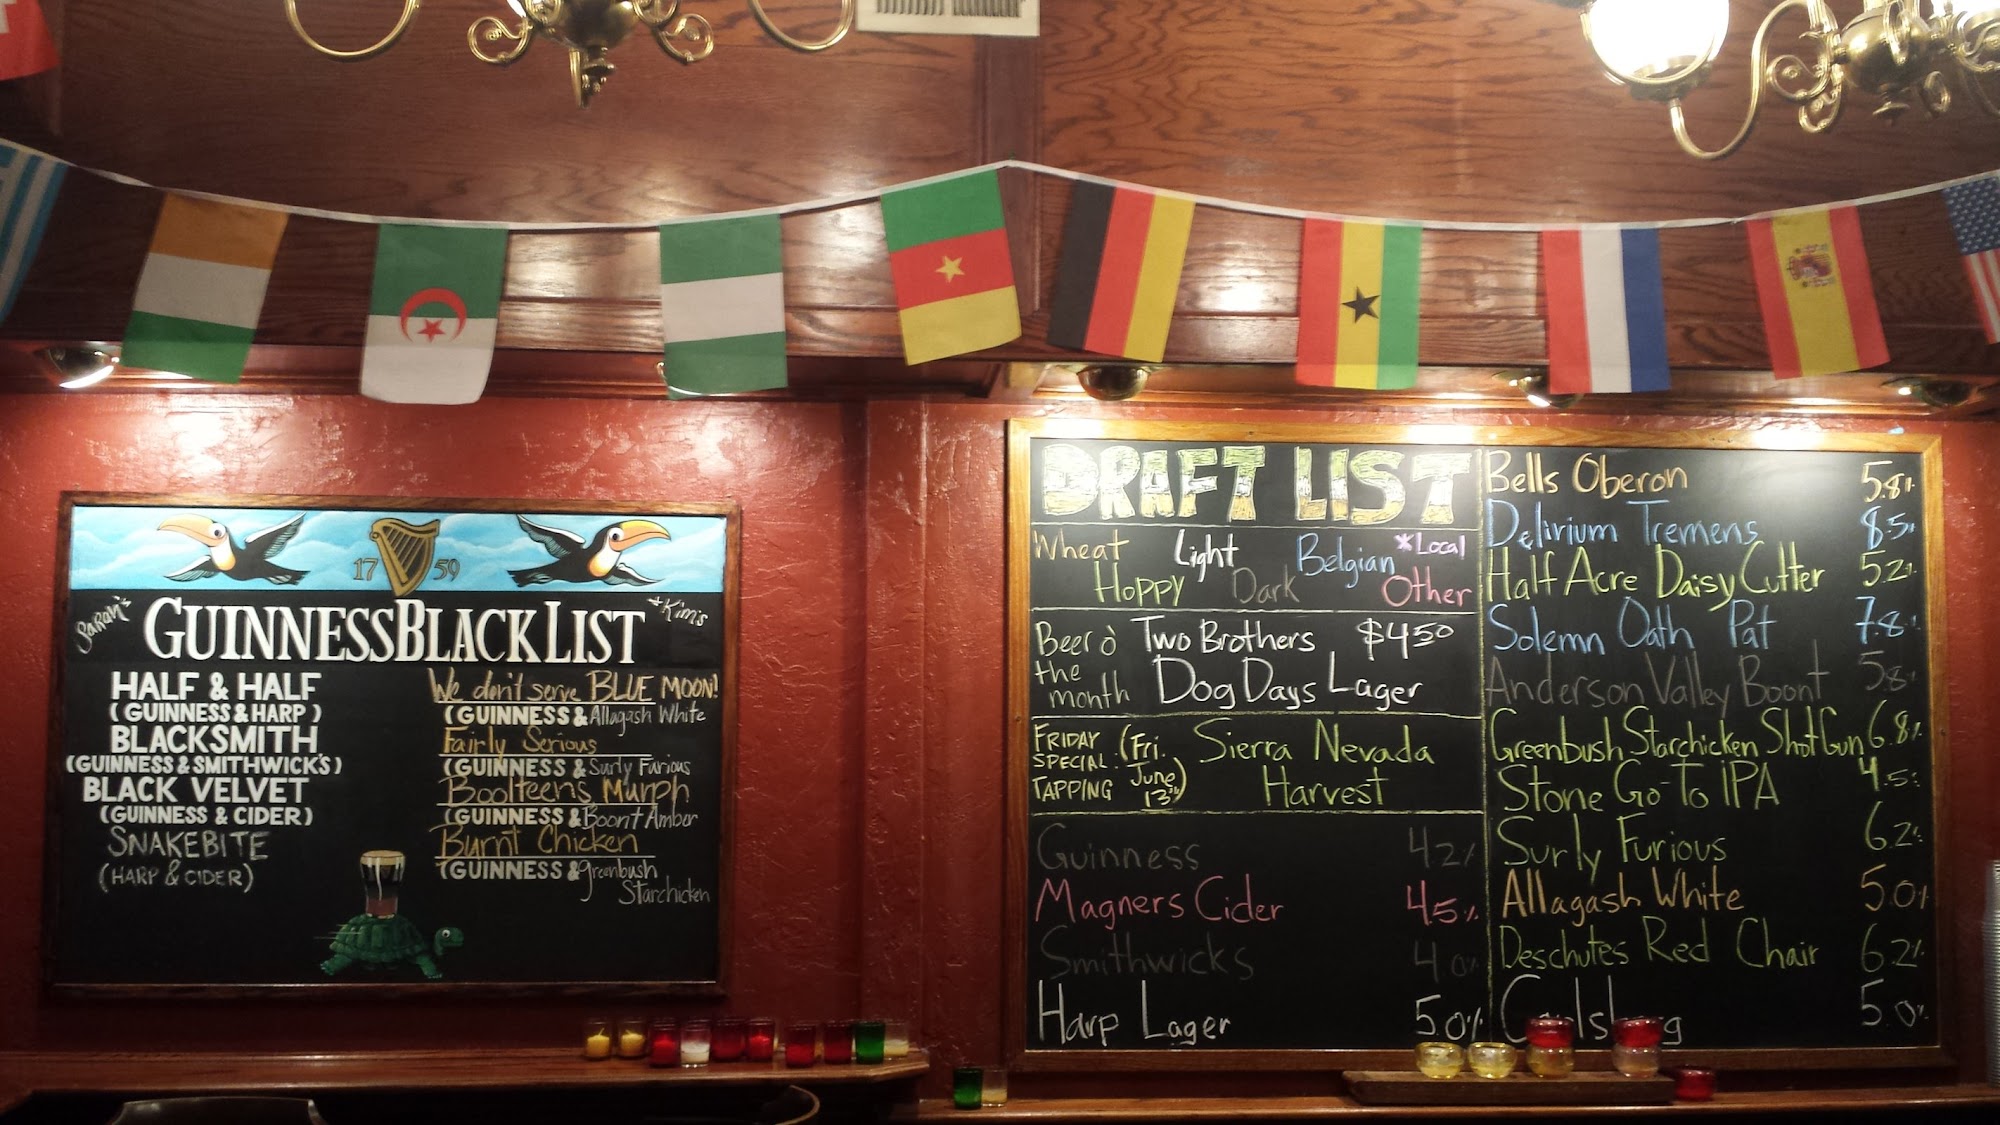 17 59
Sarah's
GUINNESS BLACK LIST
+Kim's
HALF & HALF
(GUINNESS & HARP)
BLACKSMITH
(GUINNESS & SMITHWICK'S)
BLACK VELVET
(GUINNESS & CIDER)
SNAKEBITE
(HARP & CIDER)
We don't serve BLUE MOON!
(GUINNESS & Allagash White
Fairly Serious
(GUINNESS & Surly Furious
Boolteens Murph
(GUINNESS & Boont Amber
Burnt Chicken
(GUINNESS & Greenbush
Starchicken
DRAFT LIST
Wheat Light Belgian *Local
Hoppy Dark Other
Beer o' the month
Two Brothers $4.50
Dog Days Lager
FRIDAY SPECIAL TAPPING
(Fri. June 13th)
Sierra Nevada
Harvest
Guinness 4.2%
Magners Cider 4.5%
Smithwicks 4.0%
Harp Lager 5.0%
Bells Oberon 5.8%
Delirium Tremens 8.5%
Half Acre Daisy Cutter 5.2%
Solemn Oath Pat 7.8%
Anderson Valley Boont 5.8%
Greenbush Starchicken ShotGun 6.8%
Stone Go-To IPA 4.5%
Surly Furious 6.2%
Allagash White 5.0%
Deschutes Red Chair 6.2%
Carlsberg 5.0%